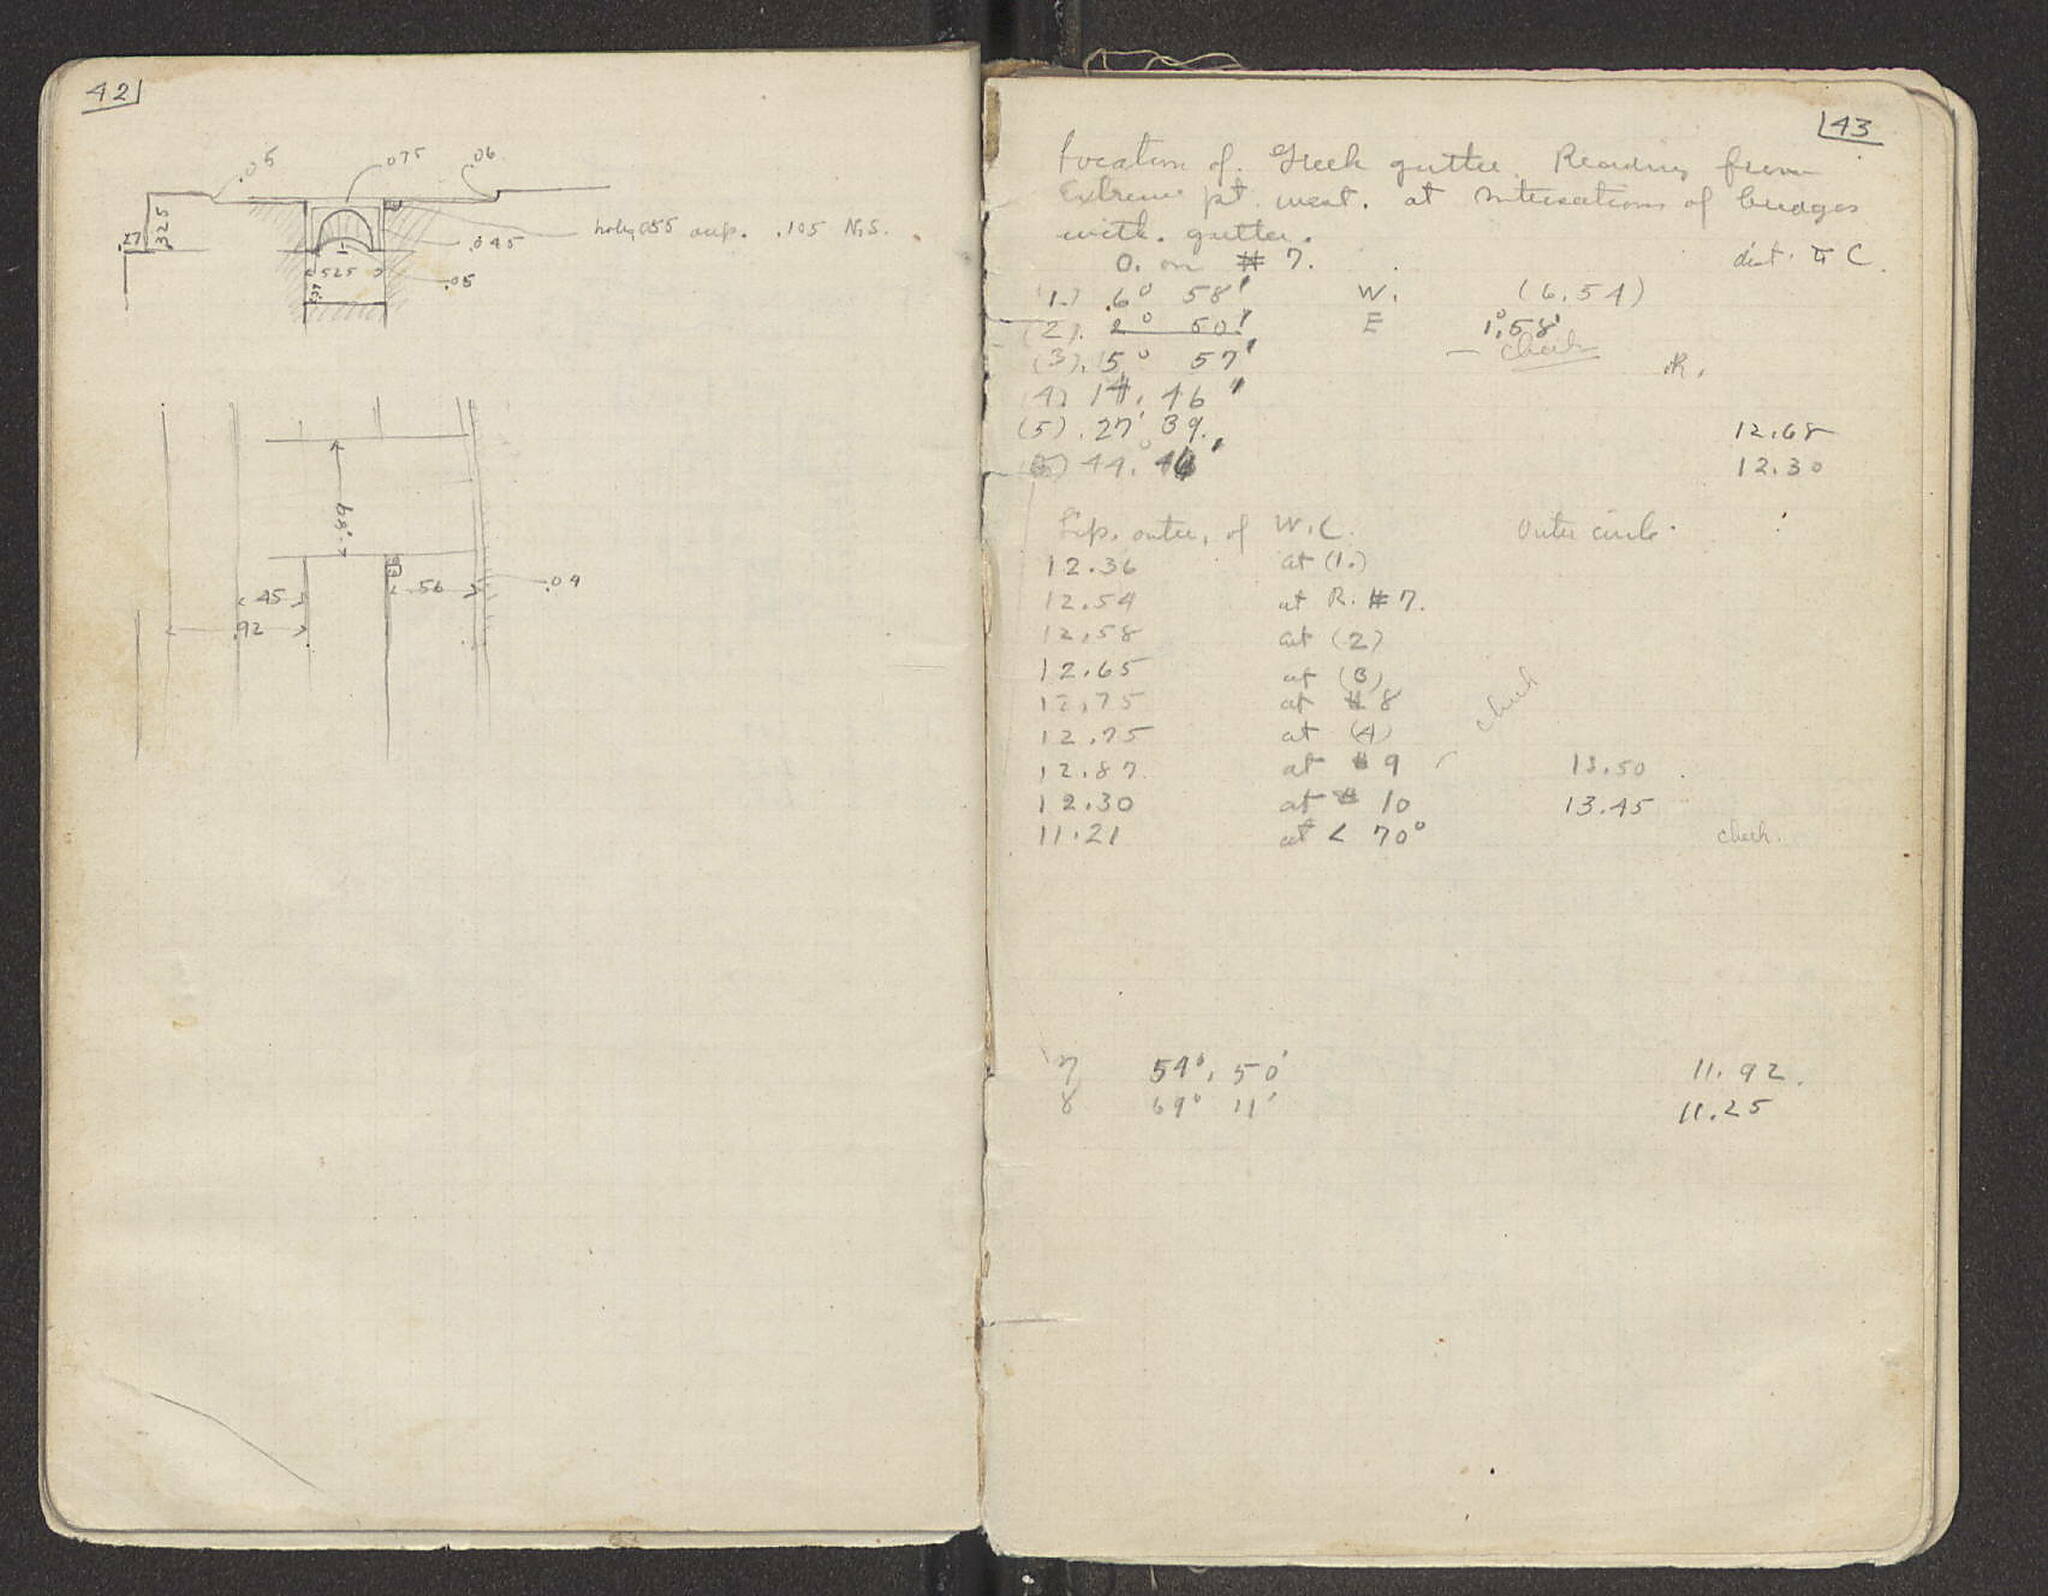 42
.05
.075
.06
.27
.325
hole .055 .105 N.S.
.045
.525
.05
.37
.68
.04
.45
.56
.92
43
Location of Greek gutter. Reading from
Extreme pt. west. at intersections of bridges
with gutter.
0. on # 7.
dist. to C.
(1.) 6° 58' W. (6.54)
(2). 2° 50' E 1°.58'
— check
(3). 15° 57' R.
(4) 14. 46'
(5). 27° 39. 12.68
(6) 44° 46' 12.30
Lip. outer, of W.C. Outer circle.
12.36 at (1.)
12.54 at R. # 7.
12.58 at (2)
12.65 at (3)
12.75 at # 8
check
12.75 at (4)
12.87. at # 9 13.50
12.30 at # 10 13.45
11.21 at < 70° check.
7 54°. 50' 11.92.
8 69° 11' 11.25